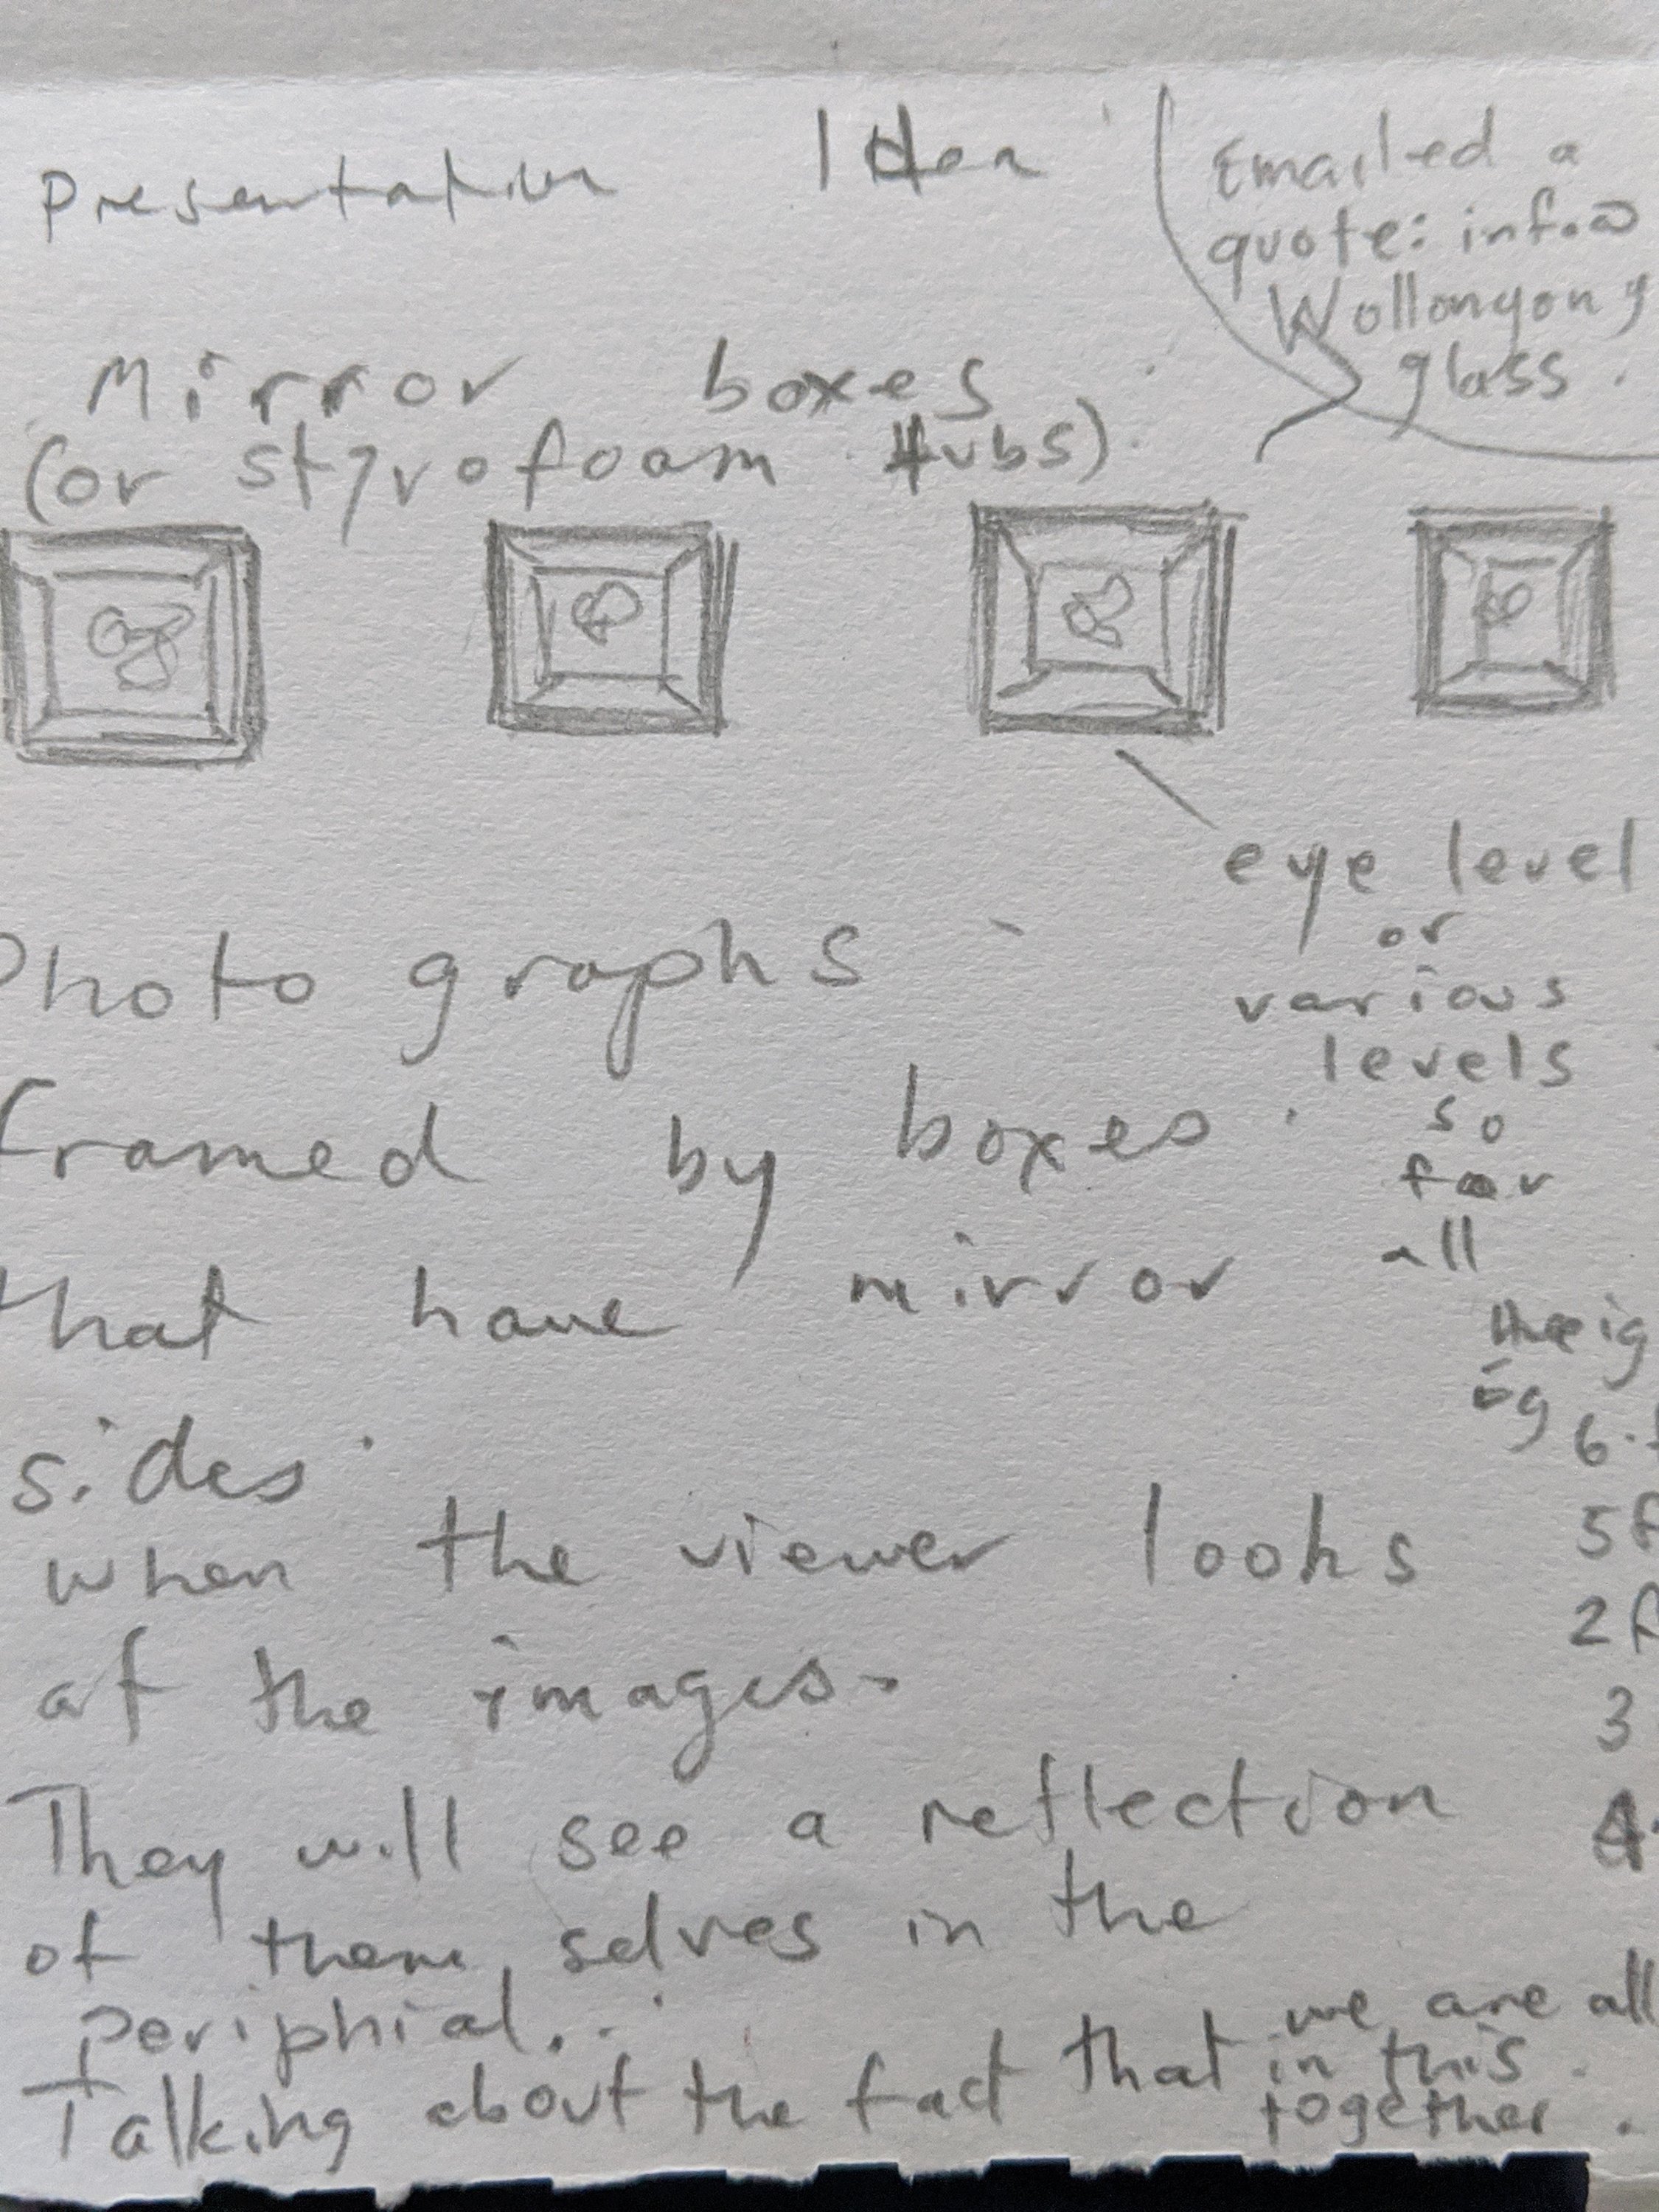 Presentation Idea
Emailed a
quote: info@
Wollongong
glass.
Mirror boxes
(or styrofoam tubs).
eye level
or
various
levels
so
for
all
heig
eg
6.f
5f
2f
3
4.
Photographs
framed by boxes.
that have mirror
sides.
when the viewer looks
at the images.
They will see a reflection
of them selves in the
periphial..
Talking about the fact that we are all
in this
together.